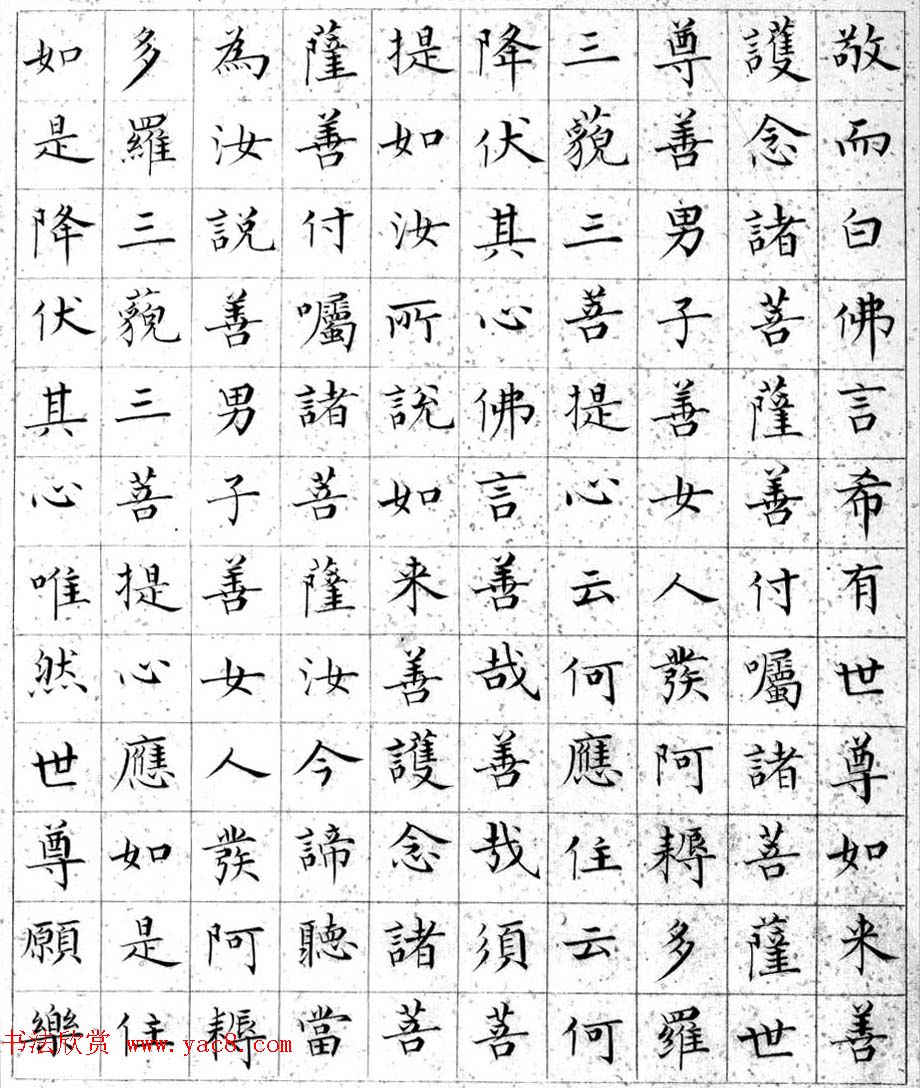 敬而白佛言希有世尊如来善
護念諸菩薩善付囑諸菩薩世
尊善男子善女人發阿耨多羅
三藐三菩提心云何應住云何
降伏其心佛言善哉善哉須菩
提如汝所說如来善護念諸菩
薩善付囑諸菩薩汝今諦聽當
為汝說善男子善女人發阿耨
多羅三藐三菩提心應如是住
如是降伏其心唯然世尊願樂
书法欣赏 www.yac8.com